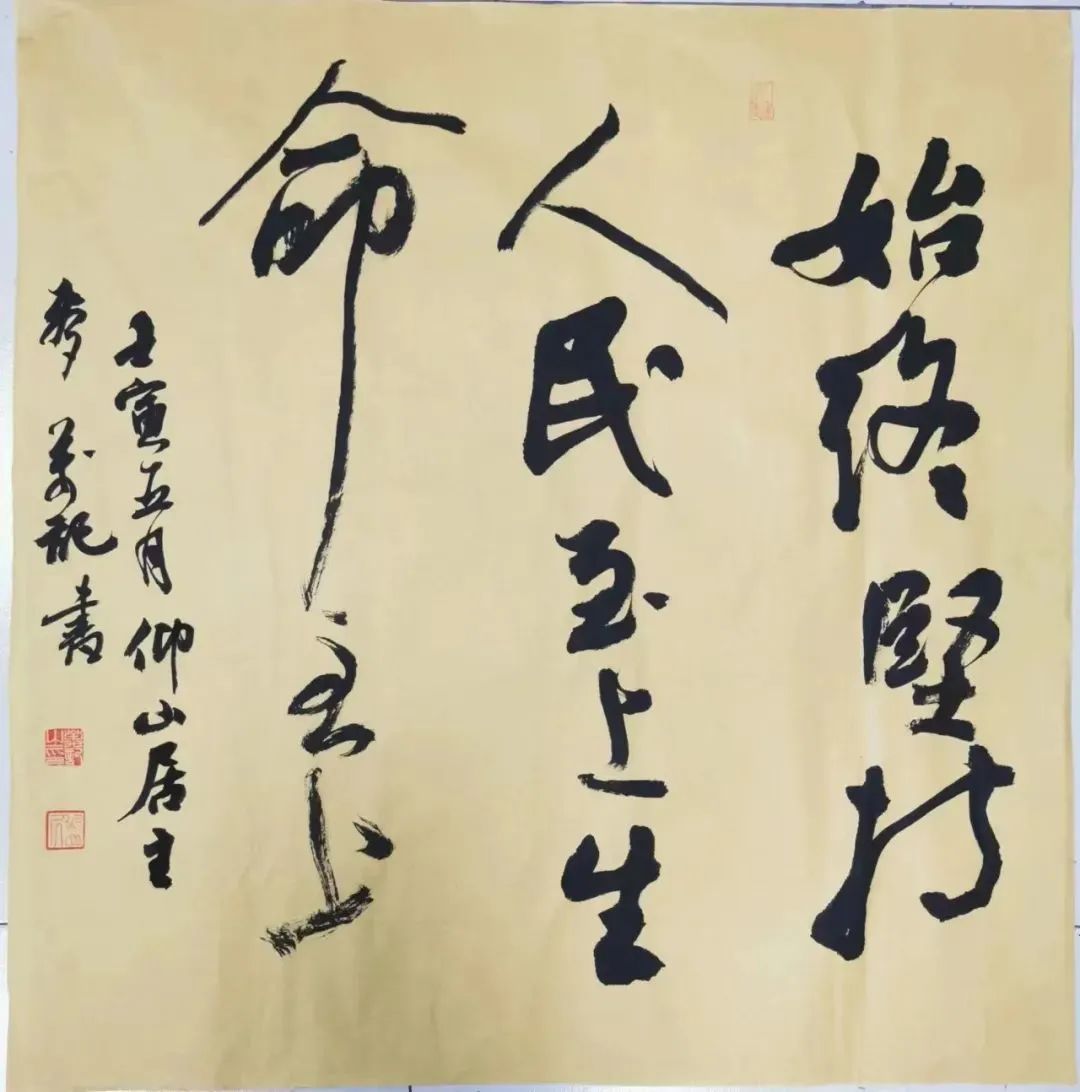 始终坚持
人民至上生
命至上
壬寅五月仰山居主
万配书